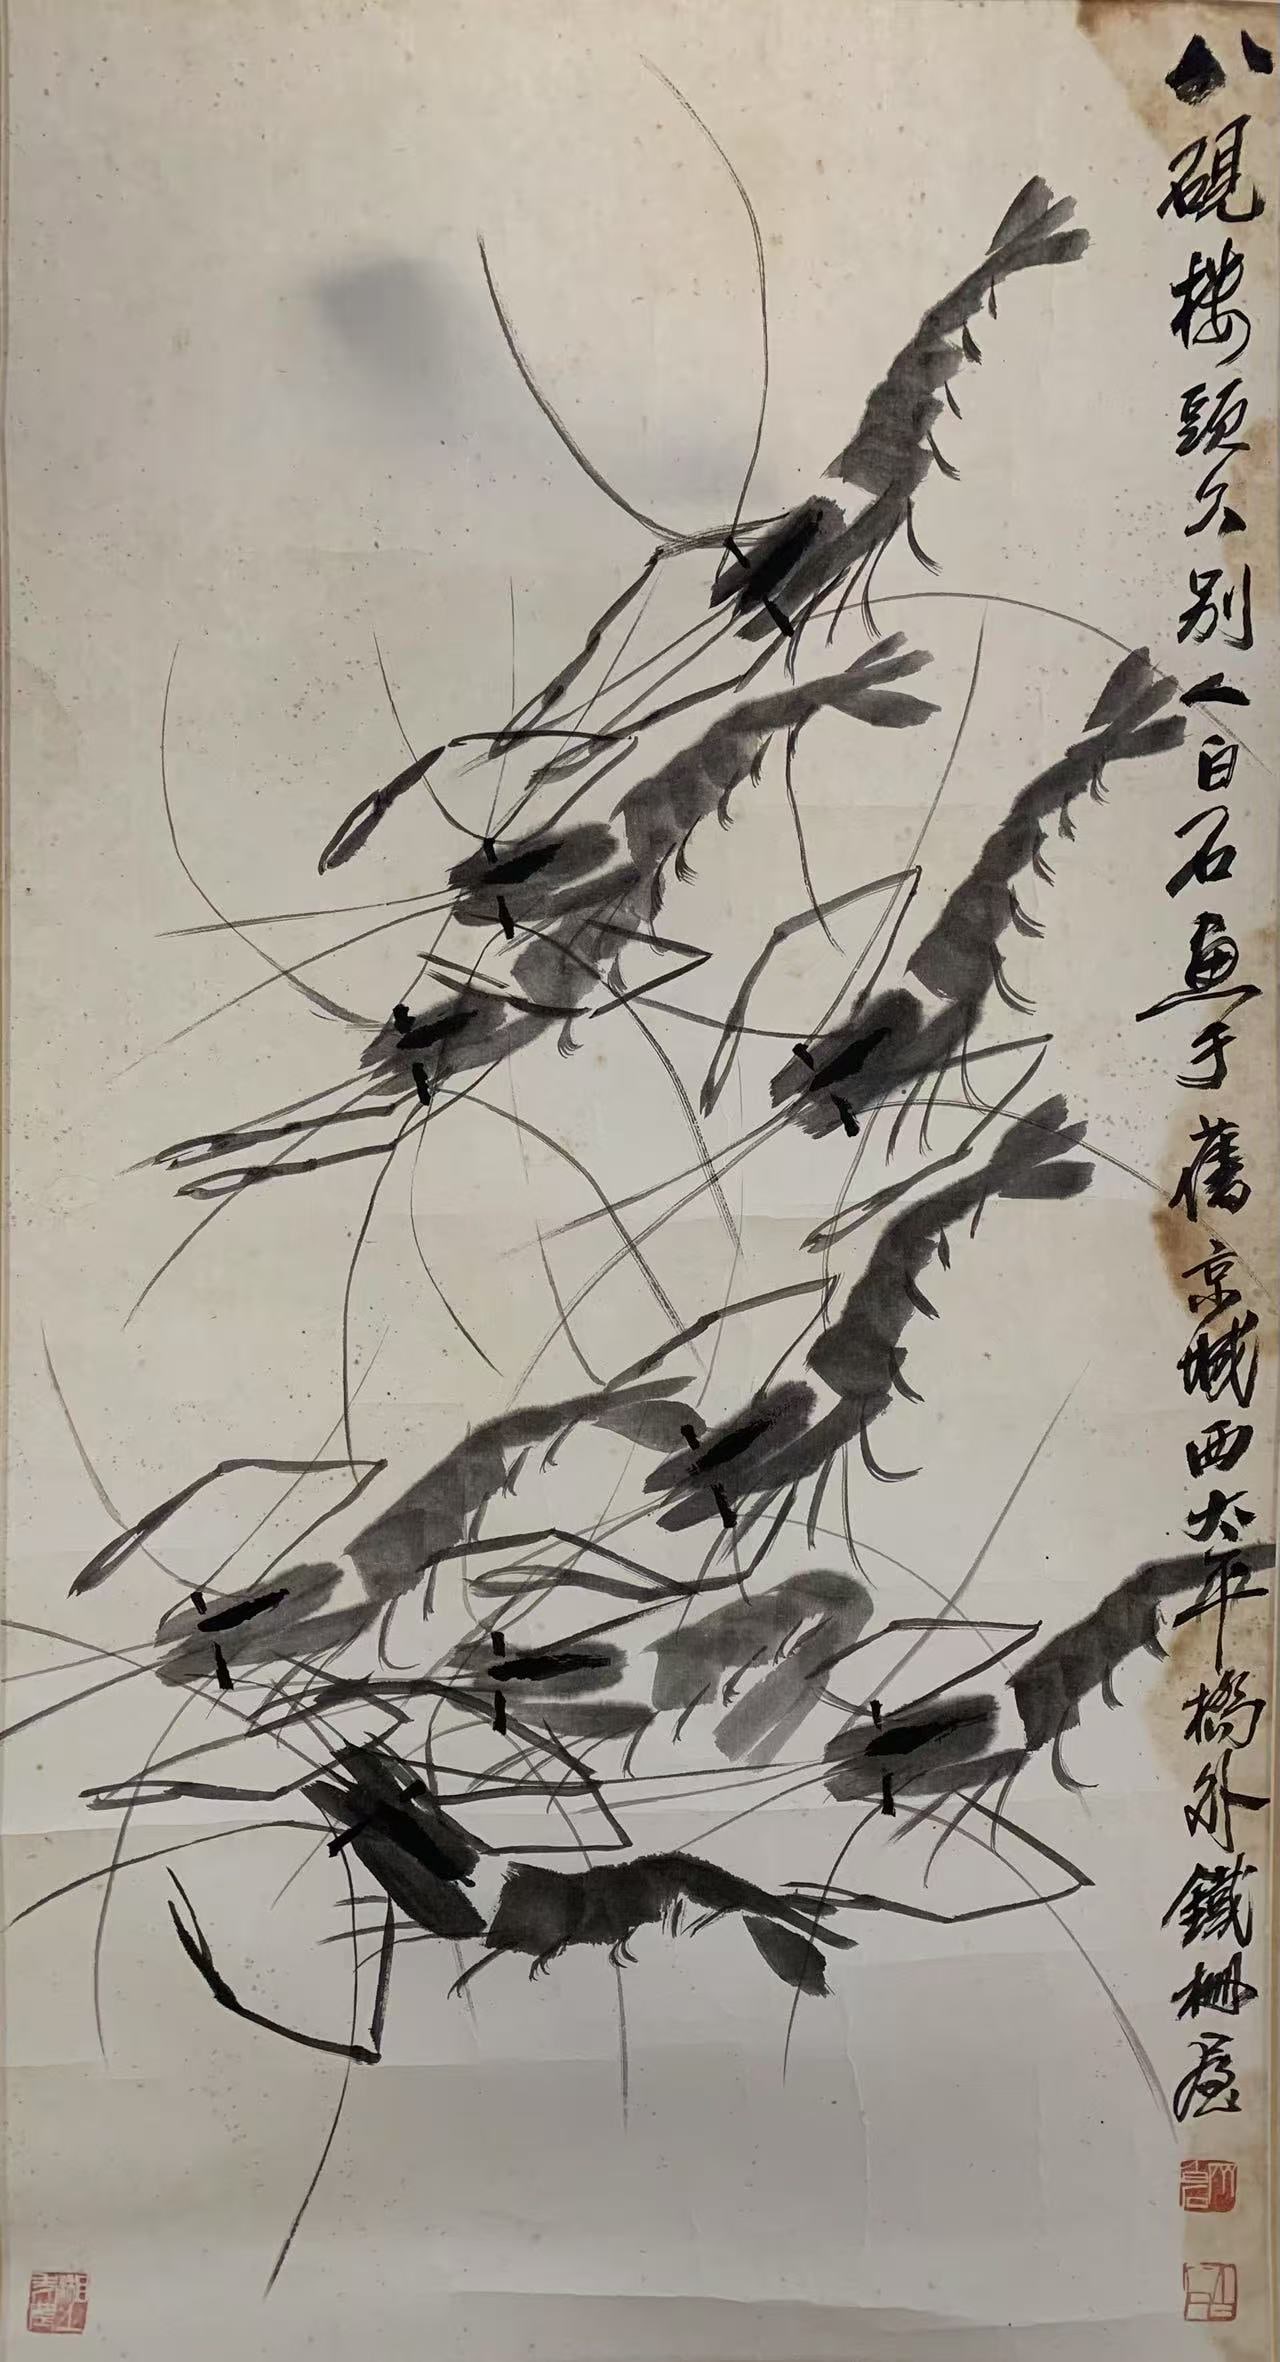 八硯樓頭久別人白石畫于舊京城西太平橋外鐵柵屋